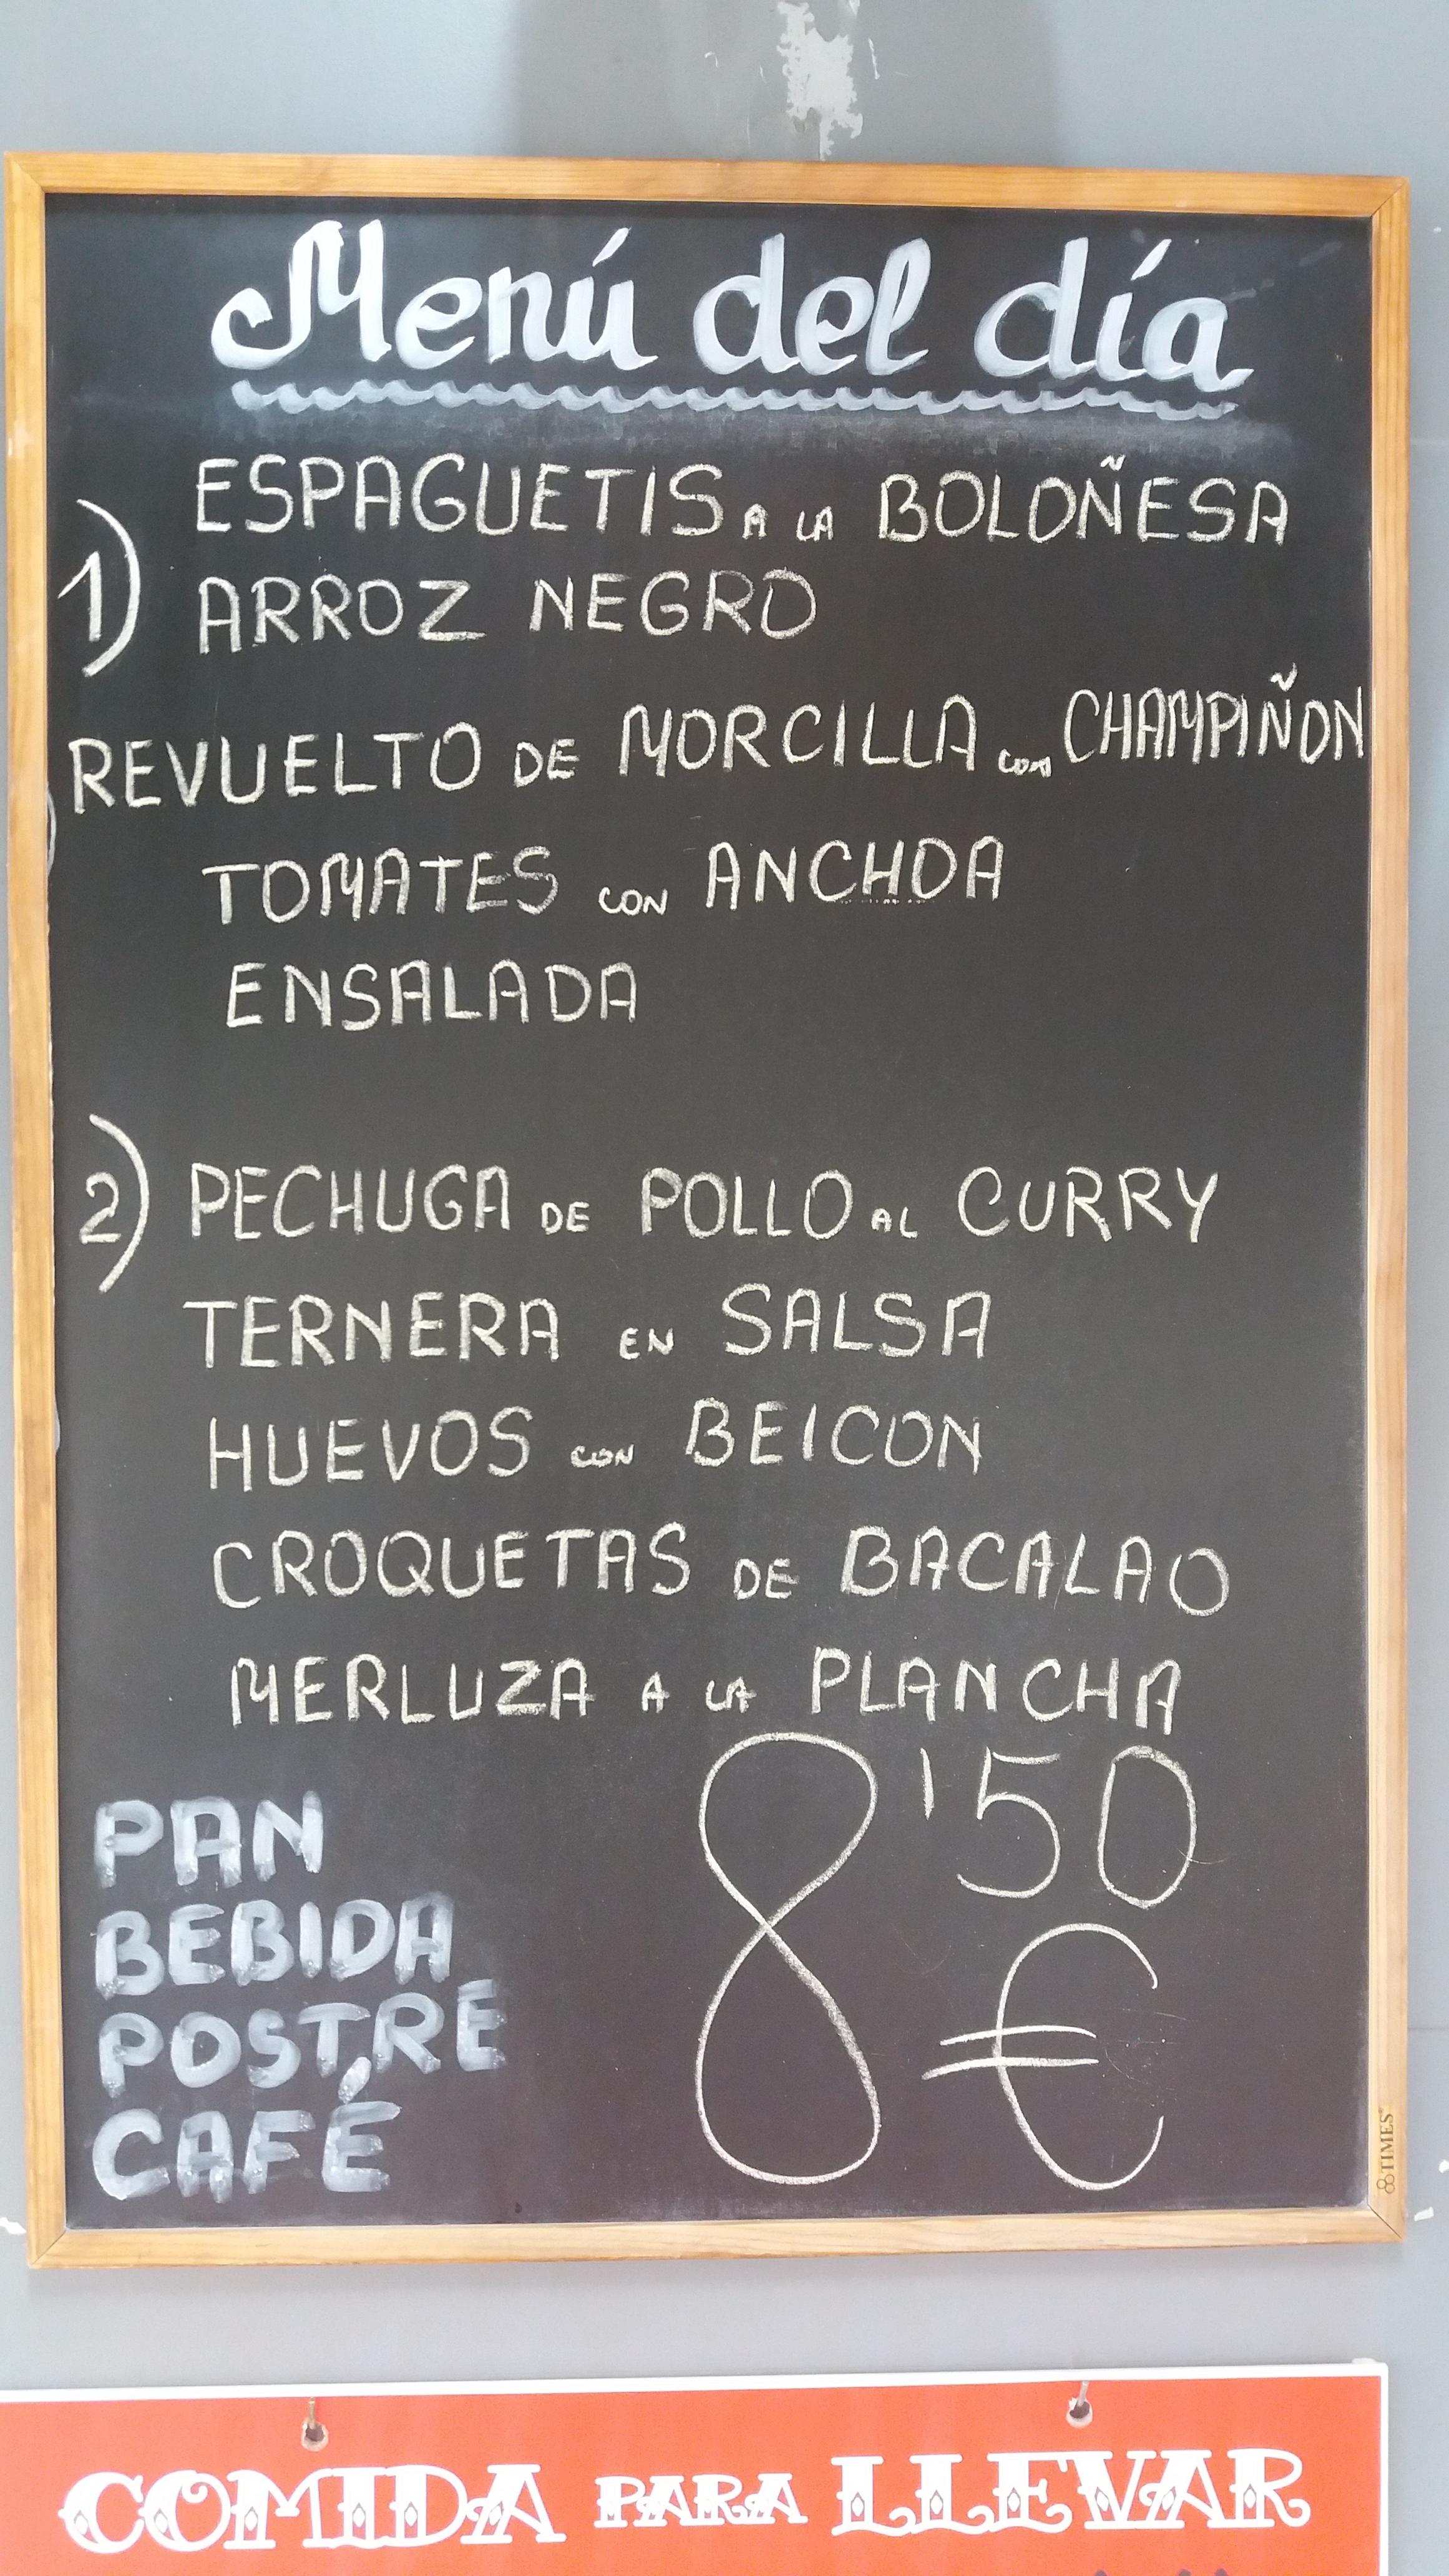 Menú del día
1) ESPAGUETIS A LA BOLOÑESA
ARROZ NEGRO
REVUELTO DE MORCILLA con CHAMPIÑON
TOMATES CON ANCHOA
ENSALADA
2) PECHUGA DE POLLO AL CURRY
TERNERA EN SALSA
HUEVOS CON BEICON
CROQUETAS DE BACALAO
MERLUZA A LA PLANCHA
8'50
€
PAN
BEBIDA
POSTRE
CAFÉ
TIMES
COMIDA PARA LLEVAR